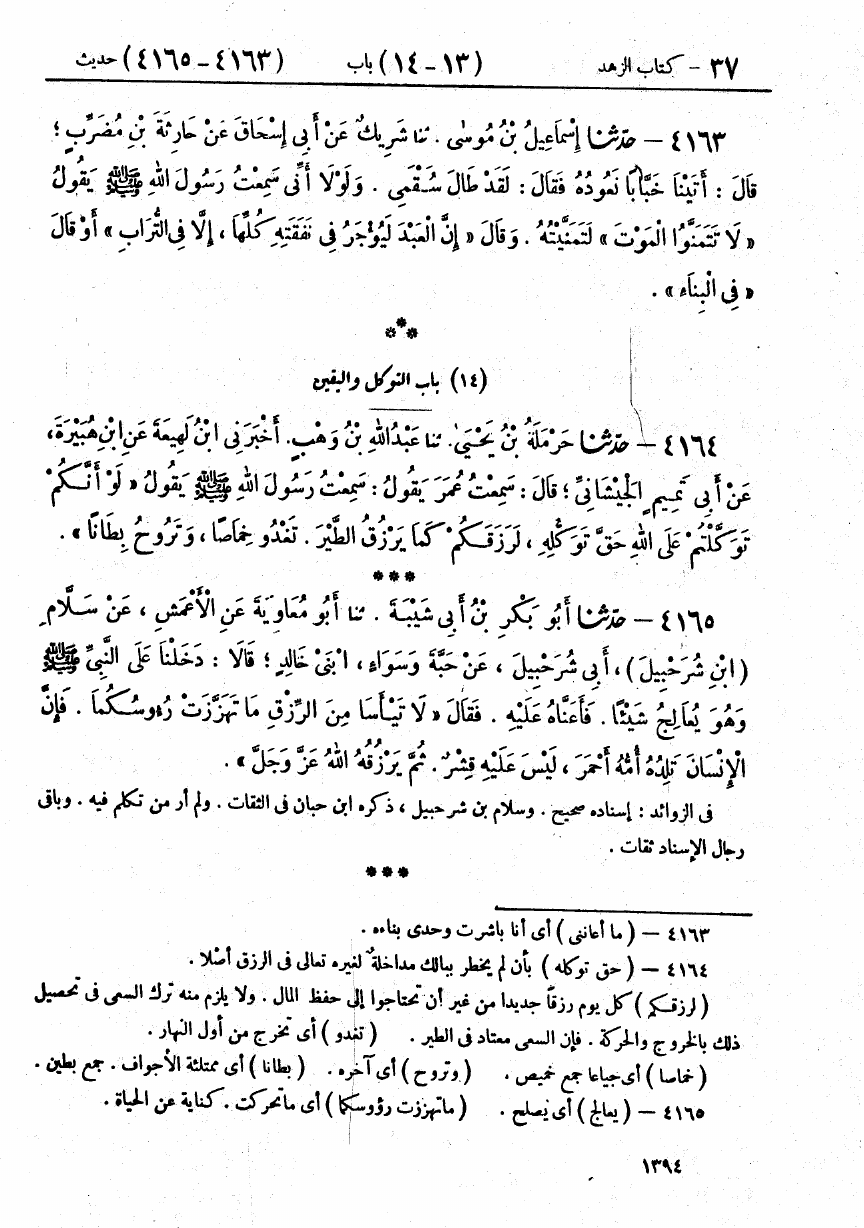 ٣٧ – كتاب الزهد (١٣ – ١٤) باب (٤١٦٣ – ٤١٦٥) حديث
٤١٦٣ – حدّثنا إِسْمَاعِيلُ بْنُ مُوسَى . ثنا شَرِيكٌ عَنْ أَبِي إِسْحَاقَ عَنْ حَارِثَةَ بْنِ مُضَرِّبٍ ؛
قَالَ : أَتَيْنَا خَبَّابًا نَعُودُهُ فَقَالَ : لَقَدْ طَالَ سُقْمِى . وَلَوْلَا أَنِّى سَمِعْتُ رَسُولَ اللهِ ﷺ يَقُولُ
« لَا تَتَمَنَّوُا الْمَوْتَ » لَتَمَنَّيْتُهُ . وَقَالَ « إِنَّ الْعَبْدَ لَيُؤْجَرُ فِى نَفَقَتِهِ كُلِّهَا ، إِلَّا فِى التُّرَابِ » أَوْ قَالَ
« فِى الْبِنَاءِ » .
***
(١٤) باب التوكل واليقين
٤١٦٤ – حدّثنا حَرْمَلَةُ بْنُ يَحْيَىٰ . ثنا عَبْدُ اللهِ بْنُ وَهْبٍ . أَخْبَرَنِى ابْنُ لَهِيعَةَ عَنِ ابْنِ هُبَيْرَةَ ،
عَنْ أَبِى تَمِيمٍ الْجَيْشَانِىِّ ؛ قَالَ : سَمِعْتُ عُمَرَ يَقُولُ : سَمِعْتُ رَسُولَ اللهِ ﷺ يَقُولُ « لَوْ أَنَّكُمْ
تَوَكَّلْتُمْ عَلَى اللهِ حَقَّ تَوَكُّلِهِ ، لَرَزَقَكُمْ كَمَا يَرْزُقُ الطَّيْرَ . تَغْدُو خِمَاصًا ، وَتَرُوحُ بِطَانًا » .
***
٤١٦٥ – حدّثنا أَبُو بَكْرِ بْنُ أَبِى شَيْبَةَ . ثنا أَبُو مُعَاوِيَةَ عَنِ الْأَعْمَشِ ، عَنْ سَلَّامٍ
( ابْنِ شُرَحْبِيلَ ) ، أَبِى شُرَحْبِيلَ ، عَنْ حَبَّةَ وَسَوَاءٍ ، ابْنَىْ خَالِدٍ ؛ قَالَا : دَخَلْنَا عَلَى النَّبِىِّ ﷺ
وَهُوَ يُعَالِجُ شَيْئًا . فَأَعَنَّاهُ عَلَيْهِ . فَقَالَ « لَا تَيْأَسَا مِنَ الرِّزْقِ مَا تَهَزَّزَتْ رُءُوسُكُمَا . فَإِنَّ
الْإِنْسَانَ تَلِدُهُ أُمُّهُ أَحْمَرَ ، لَيْسَ عَلَيْهِ قِشْرٌ . ثُمَّ يَرْزُقُهُ اللهُ عَزَّ وَجَلَّ » .
فى الزوائد : إسناده صحيح . وسلام بن شرحبيل ، ذكره ابن حبان فى الثقات . ولم أر من تكلم فيه . وباقى
رجال الإسناد ثقات .
***
٤١٦٣ – ( ما أعاننى ) أى أنا باشرت وحدى بناءه .
٤١٦٤ – ( حق توكله ) بأن لم يخطر ببالك مداخلةٌ لغيره تعالى فى الرزق أصْلا .
( لرزقكم ) كل يوم رزقاً جديدا من غير أن تحتاجوا إلى حفظ المال . ولا يلزم منه ترك السعى فى تحصيل
ذلك بالخروج والحركة . فإن السعى معتاد فى الطير . ( تغدو ) أى تخرج من أول النهار .
( خماصا ) أى جياعا جمع خميص . ( وتروح ) أى آخره . ( بطانا ) أى ممتلئة الأجواف . جمع بطين .
٤١٦٥ – ( يعالج ) أى يُصلح . ( ماتهززت رؤوسكما ) أى ماتحركت . كناية عن الحياة .
١٣٩٤